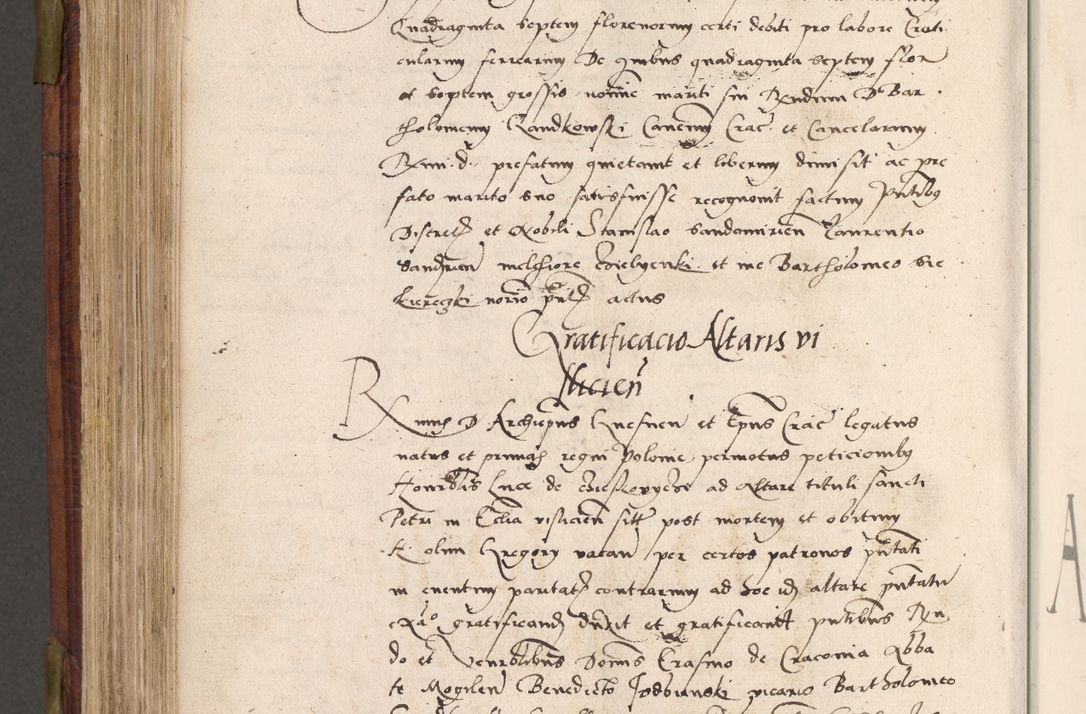 Quadraginta septem florenorum certi debiti pro labore Crati
cularum ferrearum De quibus quadraginta septem flor
et septem grossis nomine mariti sui Rendum D Bar
tholomeum Gandkowski Cancum Crac et Cancelarium
Rmi d prefatum quietavit et liberum dimisit ac pre
fato marito suo satisfuisse recognovit factum pntibus
Discret et Nobili Stanislao Sandomirien Laurentio
Sandrien melchiore et me Bartholomeo
norio pnt actus
Gratificacio Altaris vi
slicien
Rmus D Archiepus Gnesnen et Epus Crac legatus
natus et primas regni Polonie permotus peticionibus
Honrabilis Luce de ad Altare tituli sancti
Petri in Ecclia vislicien sitt post mortem et obitum
H olim Gregorii vacan per certos patronos pntati
in eventum paritat contrarium ad hoc id altare pntatum
gratificand duxit et gratificavit pntibus Ren
do et Venrabilibus Domis Erasmo de Cracovia Abba
te Mogilen Benedicto Jsdbienski vicario Bartholomeo